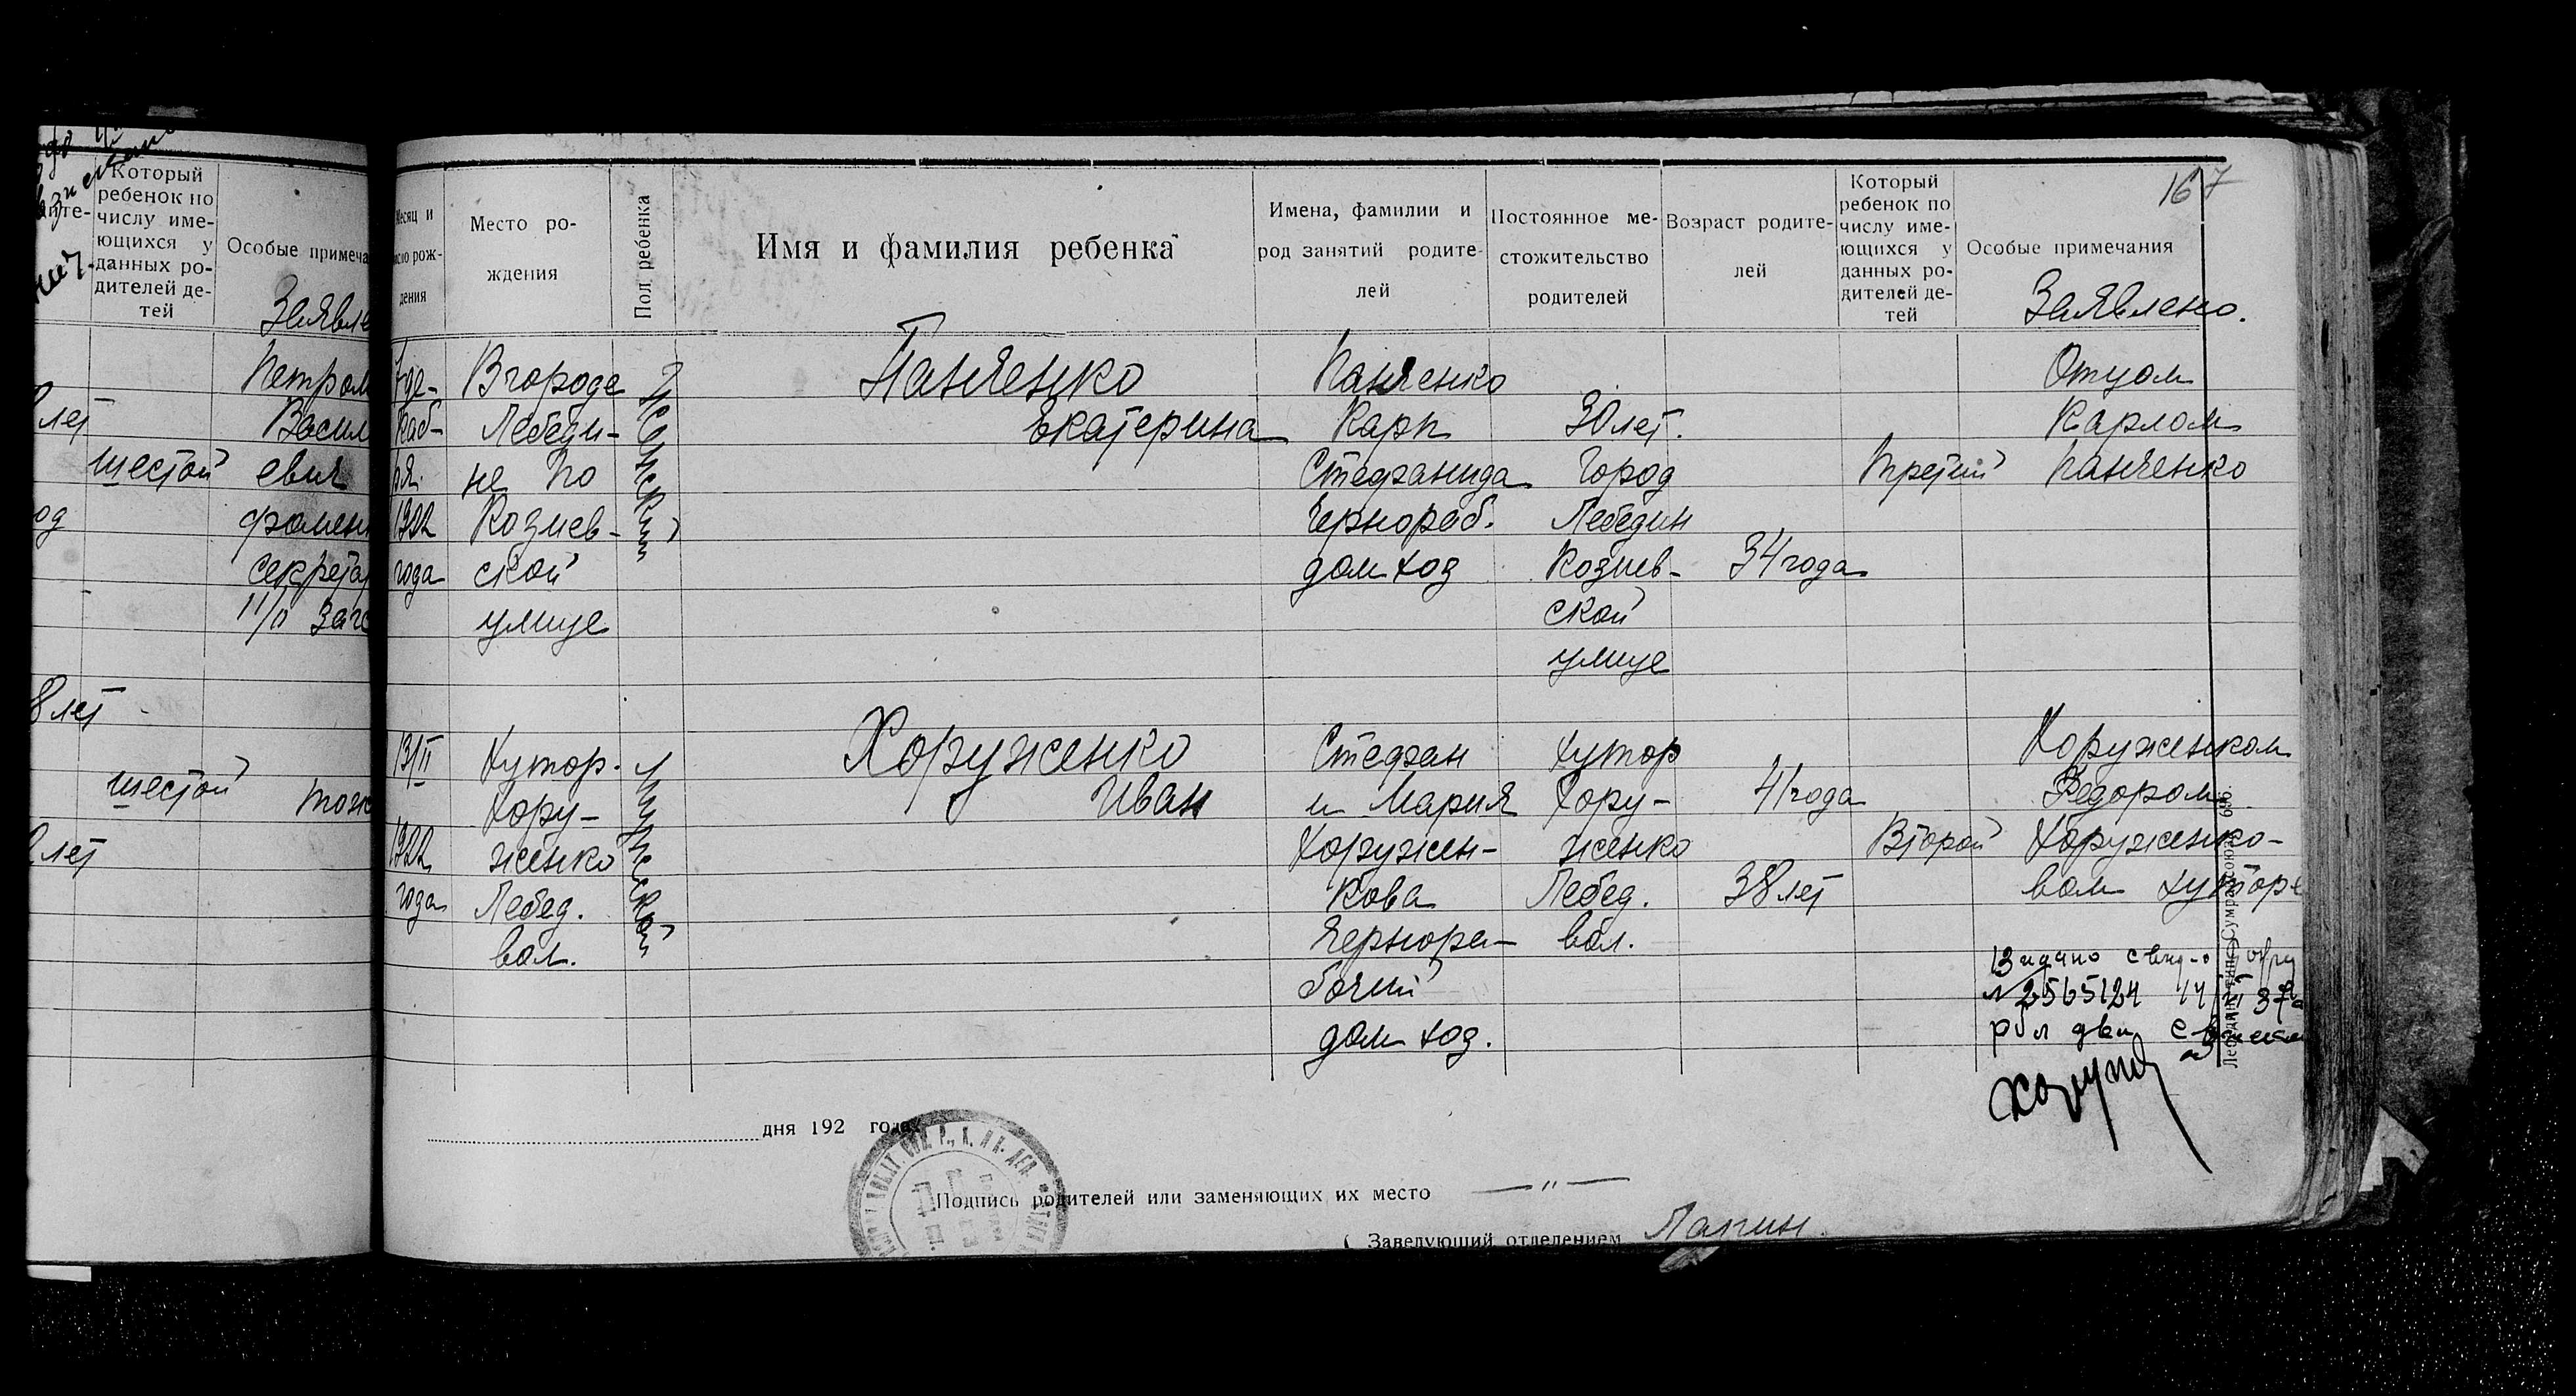 Который
ребенок по
числу име-
ющихся у
данных ро-
дителей де-
тей
Особые примеча
Заявле
Петром
лет
Васил
шестой
евия
фомен
секрета
8 лет
шестой
тож
лет
167
Месяц и
число рож-
дения
Место ро-
ждения
Пол ребенка
Имя и фамилия ребенка
Имена, фамилии и
род занятий родите-
лей
Постоянное ме-
стожительство
родителей
Возраст родите-
лей
Который
ребенок по
числу име-
ющихся у
данных ро-
дителей де-
тей
Особые примечания
Заявлено.
7 де-
каб-
ря
1922
года
В городе
Лебеди-
не по
Козиев-
ской
улице
Женский
Панченко
Екатерина
Панченко
Карп
Стефанида
Чернораб.
дом хоз
30 лет.
Город
Лебедин
Козиев-
ской
улице
34 года
третий
Отцом
Карпом
Панченко
13/II
1922
года
Хутор.
Хору-
женко
Лебед.
вол.
Мужской
Хоруженко
Иван
Стефан
и Мария
Хоружен-
кова
Чернора-
бочий
дом хоз.
хутор
Хору-
женко
Лебед.
вол.
41 года
38 лет
Второй
Хоруженком
Федором
Хоруженко-
вом хуторе
Видано свид-о
№ 2565124
дня 192 года
Подпись родителей или заменяющих их место —"—
( Заведующий отделением Лапин